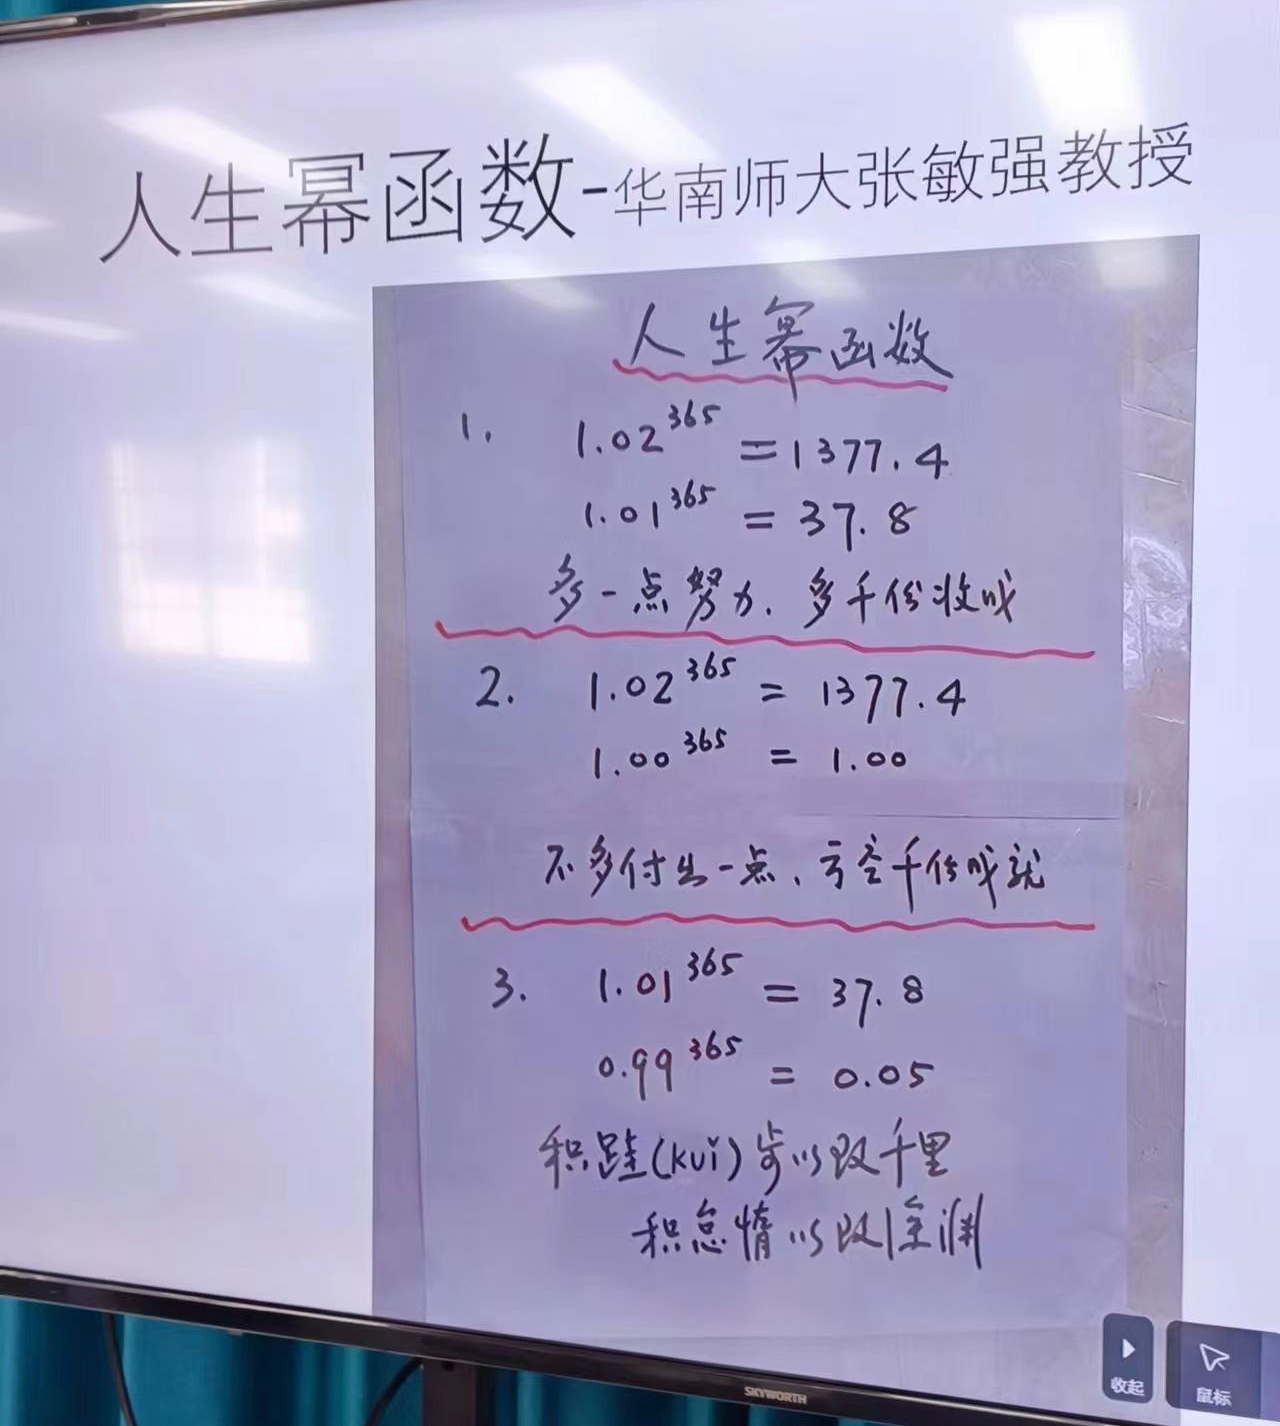 人生幂函数-华南师大张敏强教授
人生幂函数
1. 1.02^365 = 1377.4
1.01^365 = 37.8
多一点努力、多千份收成
2. 1.02^365 = 1377.4
1.00^365 = 1.00
不多付出一点、亏空千份成就
3. 1.01^365 = 37.8
0.99^365 = 0.05
积跬(kuǐ)步以致千里
积怠惰以致深渊
收起
鼠标
SKYWORTH